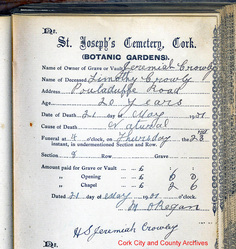 St. Joseph's Cemetery, Cork.
(BOTANIC GARDENS)
Name of Owner of Grave or Vault Jeremiah Crowly
Name of Deceased Timothy Crowly
Address Pouladuffe Road
Age 20 years
Date of Death 21 of May
Cause of Death Natural
Funeral at o'clock, on Thursday the 23
instant, in undermentioned Section and Row.
Section 8 Row Grave
Amount paid for Grave or Vault £
" Opening £ 6 0
" Chapel £ 2 6
Dated 21 day of May
M O'Regan
HS Jeremiah Crowly
Cork City and County Archives